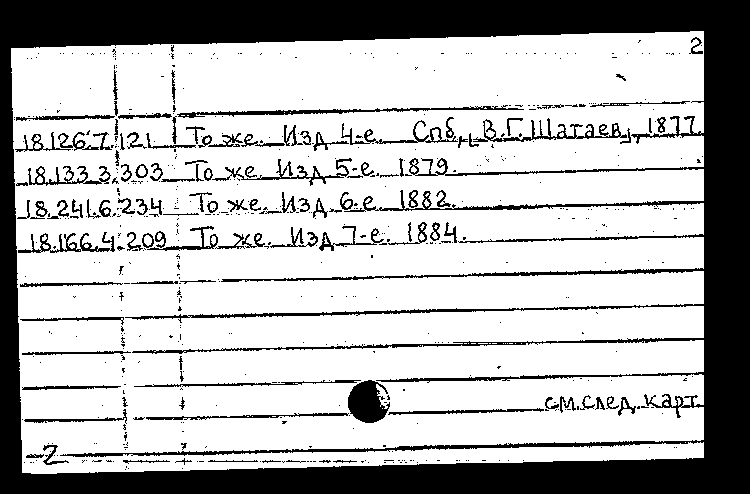 2
18.126.7.121 То же. Изд 4-е. Спб., [В.Г. Шатаев], 1877.
18.133.3.303 То же. Изд 5-е. 1879.
18.241.6.234 То же. Изд. 6-е. 1882.
18.166.4.209 То же. Изд 7-е. 1884.
см. след. карт.
-2